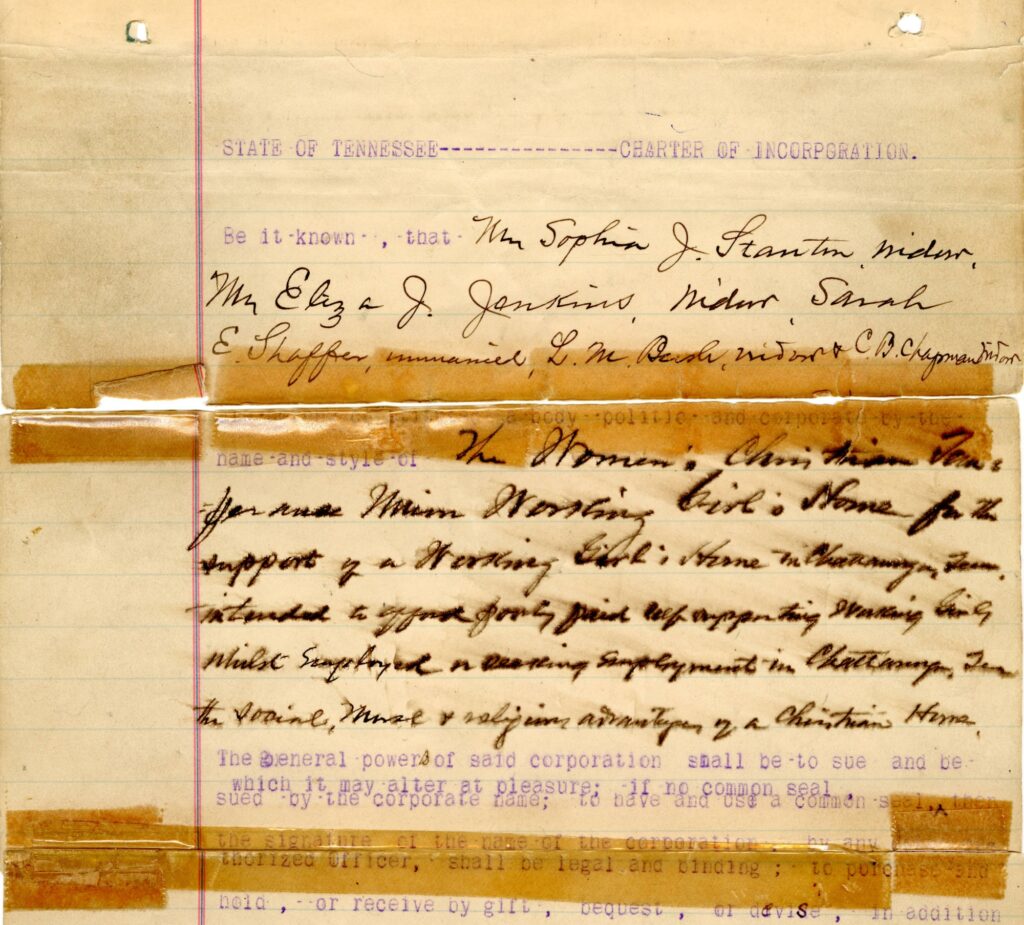 STATE OF TENNESSEE---------------CHARTER OF INCORPORATION.
Be it known , that Mrs Sophia J. Stanton, widow,
Mrs Eliza J. Jenkins, widow, Sarah
E. Shaffer, unmarried, L. M. Bush, widow & C. B. Chapman widow
a body politic and corporate by the
name and style of The Women's Christian Tem-
perance Union Working Girl's Home for the
support of a Working Girl's Home in Chattanooga, Tenn,
intended to afford poorly paid self supporting Working Girls
whilst Employed or seeking Employment in Chattanooga, Tenn
the social, Moral & religious advantages of a Christian Home.
The general powers of said corporation shall be to sue and be
which it may alter at pleasure; if no common seal ,
sued by the corporate name; to have and use a common seal, then
the signature of the name of the corporation, by any
thorized Officer, shall be legal and binding ; to purchase and
hold , or receive by gift , bequest , or devise , in addition